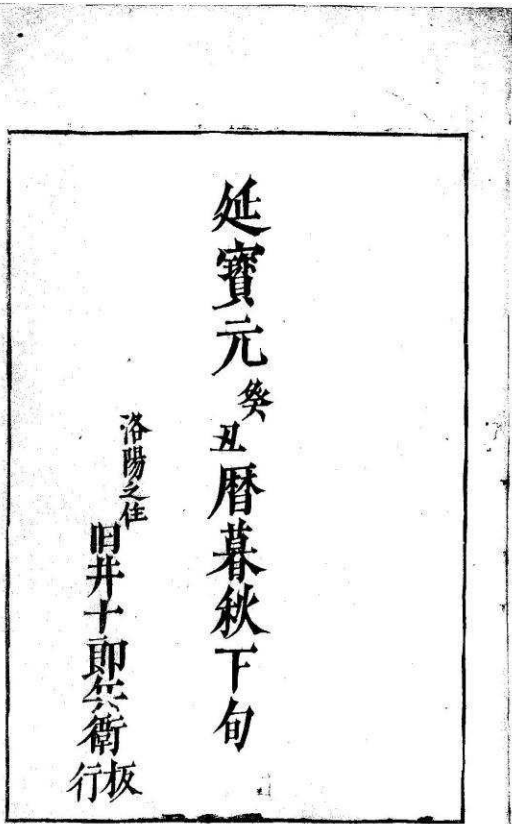 延寶元癸丑暦暮秋下旬
洛陽之住
旧井十郎兵衛板行